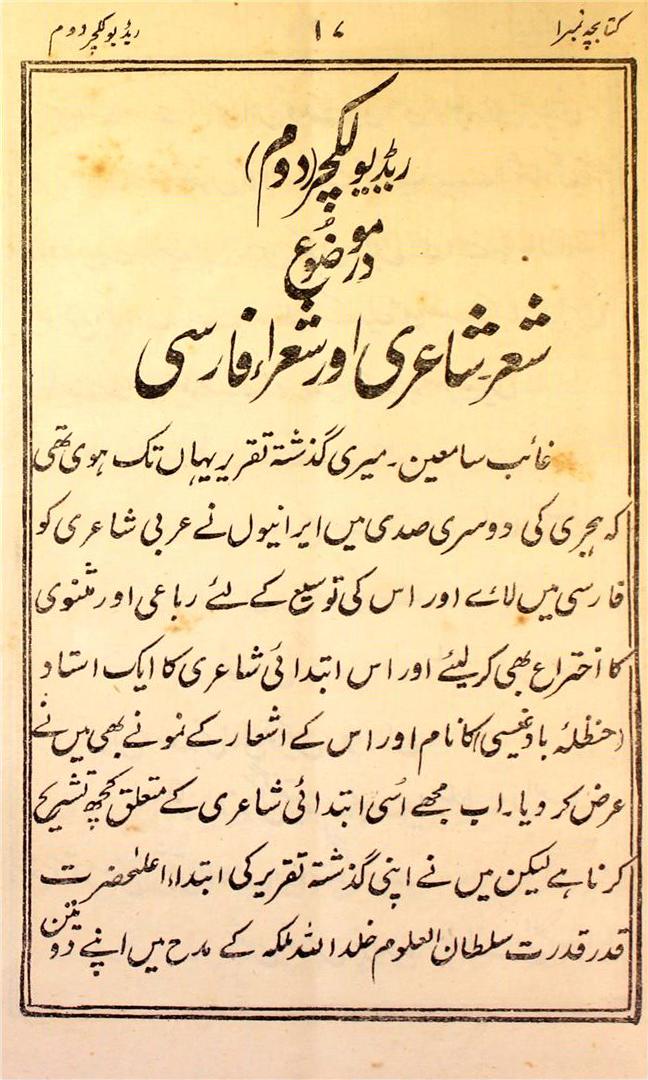 کتابچہ نمبرا ۱۷ ریڈیو لکچر دوم
ریڈیو لکچر (دوم)
در موضُوع
شعر۔ شاعری اور شعراء فارسی
غائب سامعین۔ میری گذشتہ تقریر یہاں تک ہوی تھی
کہ ہجری کی دوسری صدی میں ایرانیوں نے عربی شاعری کو
فارسی میں لاۓ اور اس کی توسیع کے لئے رباعی اور مثنوی
کا اختراع بھی کر لیئے اور اس ابتدائی شاعری کا ایک استاد
(حنظلۂ بادغیسی) کا نام اور اس کے اشعار کے نمونے بھی میں نے
عرض کر دیا۔ اب مجھے اُسی ابتدائی شاعری کے متعلق کچھ تشریح
کرنا ہے لیکن میں نے اپنی گذشتہ تقریر کی ابتداء اعلٰحضرت
قدر قدرت سلطان العلوم خلد اللہ ملکہ کے مدح میں اپنے دو تین